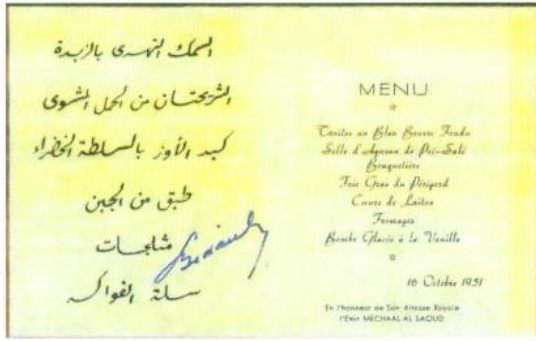 السمك النهري بالزبدة
الشريحتان من الحمل المشوى
كبد الأوز بالسلطة الخضراء
طبق من الجبن
مثلجات
سلة الفواكه
MENU
Truites au Bleu Beurre Fondu
Selle d'Agneau de Pré-Salé
Bouquetière
Foie Gras du Périgord
Cœurs de Laitue
Fromages
Bombe Glacée à la Vanille
16 Octobre 1951
En l'honneur de Son Altesse Royale
l'Emir MECHAAL AL SAOUD